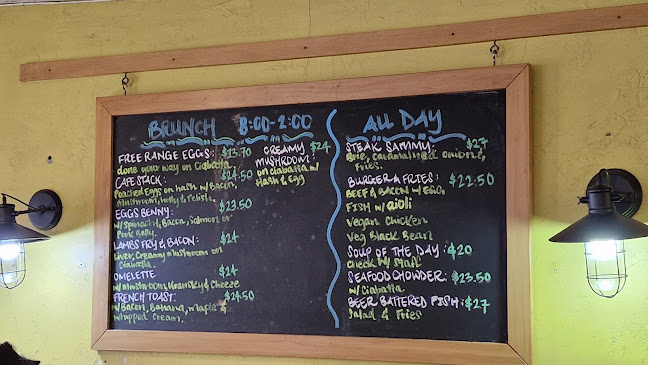 BRUNCH 8:00-2:00
FREE RANGE EGGS: $13.70
done your way on Ciabatta
CAFE STACK: $24.50
Poached Eggs on hash w/ Bacon,
Mushroom, Holly & relish.
EGGS BENNY: $23.50
w/ Spinach, Bacon, Salmon or
Pork Belly.
LAMBS FRY & BACON: $24
Liver, Creamy mushroom on
Ciabatta.
OMELETTE: $24
w/ Mushroom, & Cheese
FRENCH TOAST: $24.50
w/ Bacon, Banana, maple &
whipped Cream.
CREAMY $24
MUSHROOM:
on ciabatta w/
Hash & Egg
ALL DAY
STEAK SAMMY: $27
Brie, caramalised onions,
Fries.
BURGER & FRIES: $22.50
BEEF & BACON w/ EGG
FISH w/ aioli
Vegan Chicken
Veg Black Bean
SOUP OF THE DAY: $20
Check w/ Staff
SEAFOOD CHOWDER: $23.50
w/ Ciabatta
BEER BATTERED FISH: $27
Salad & Fries